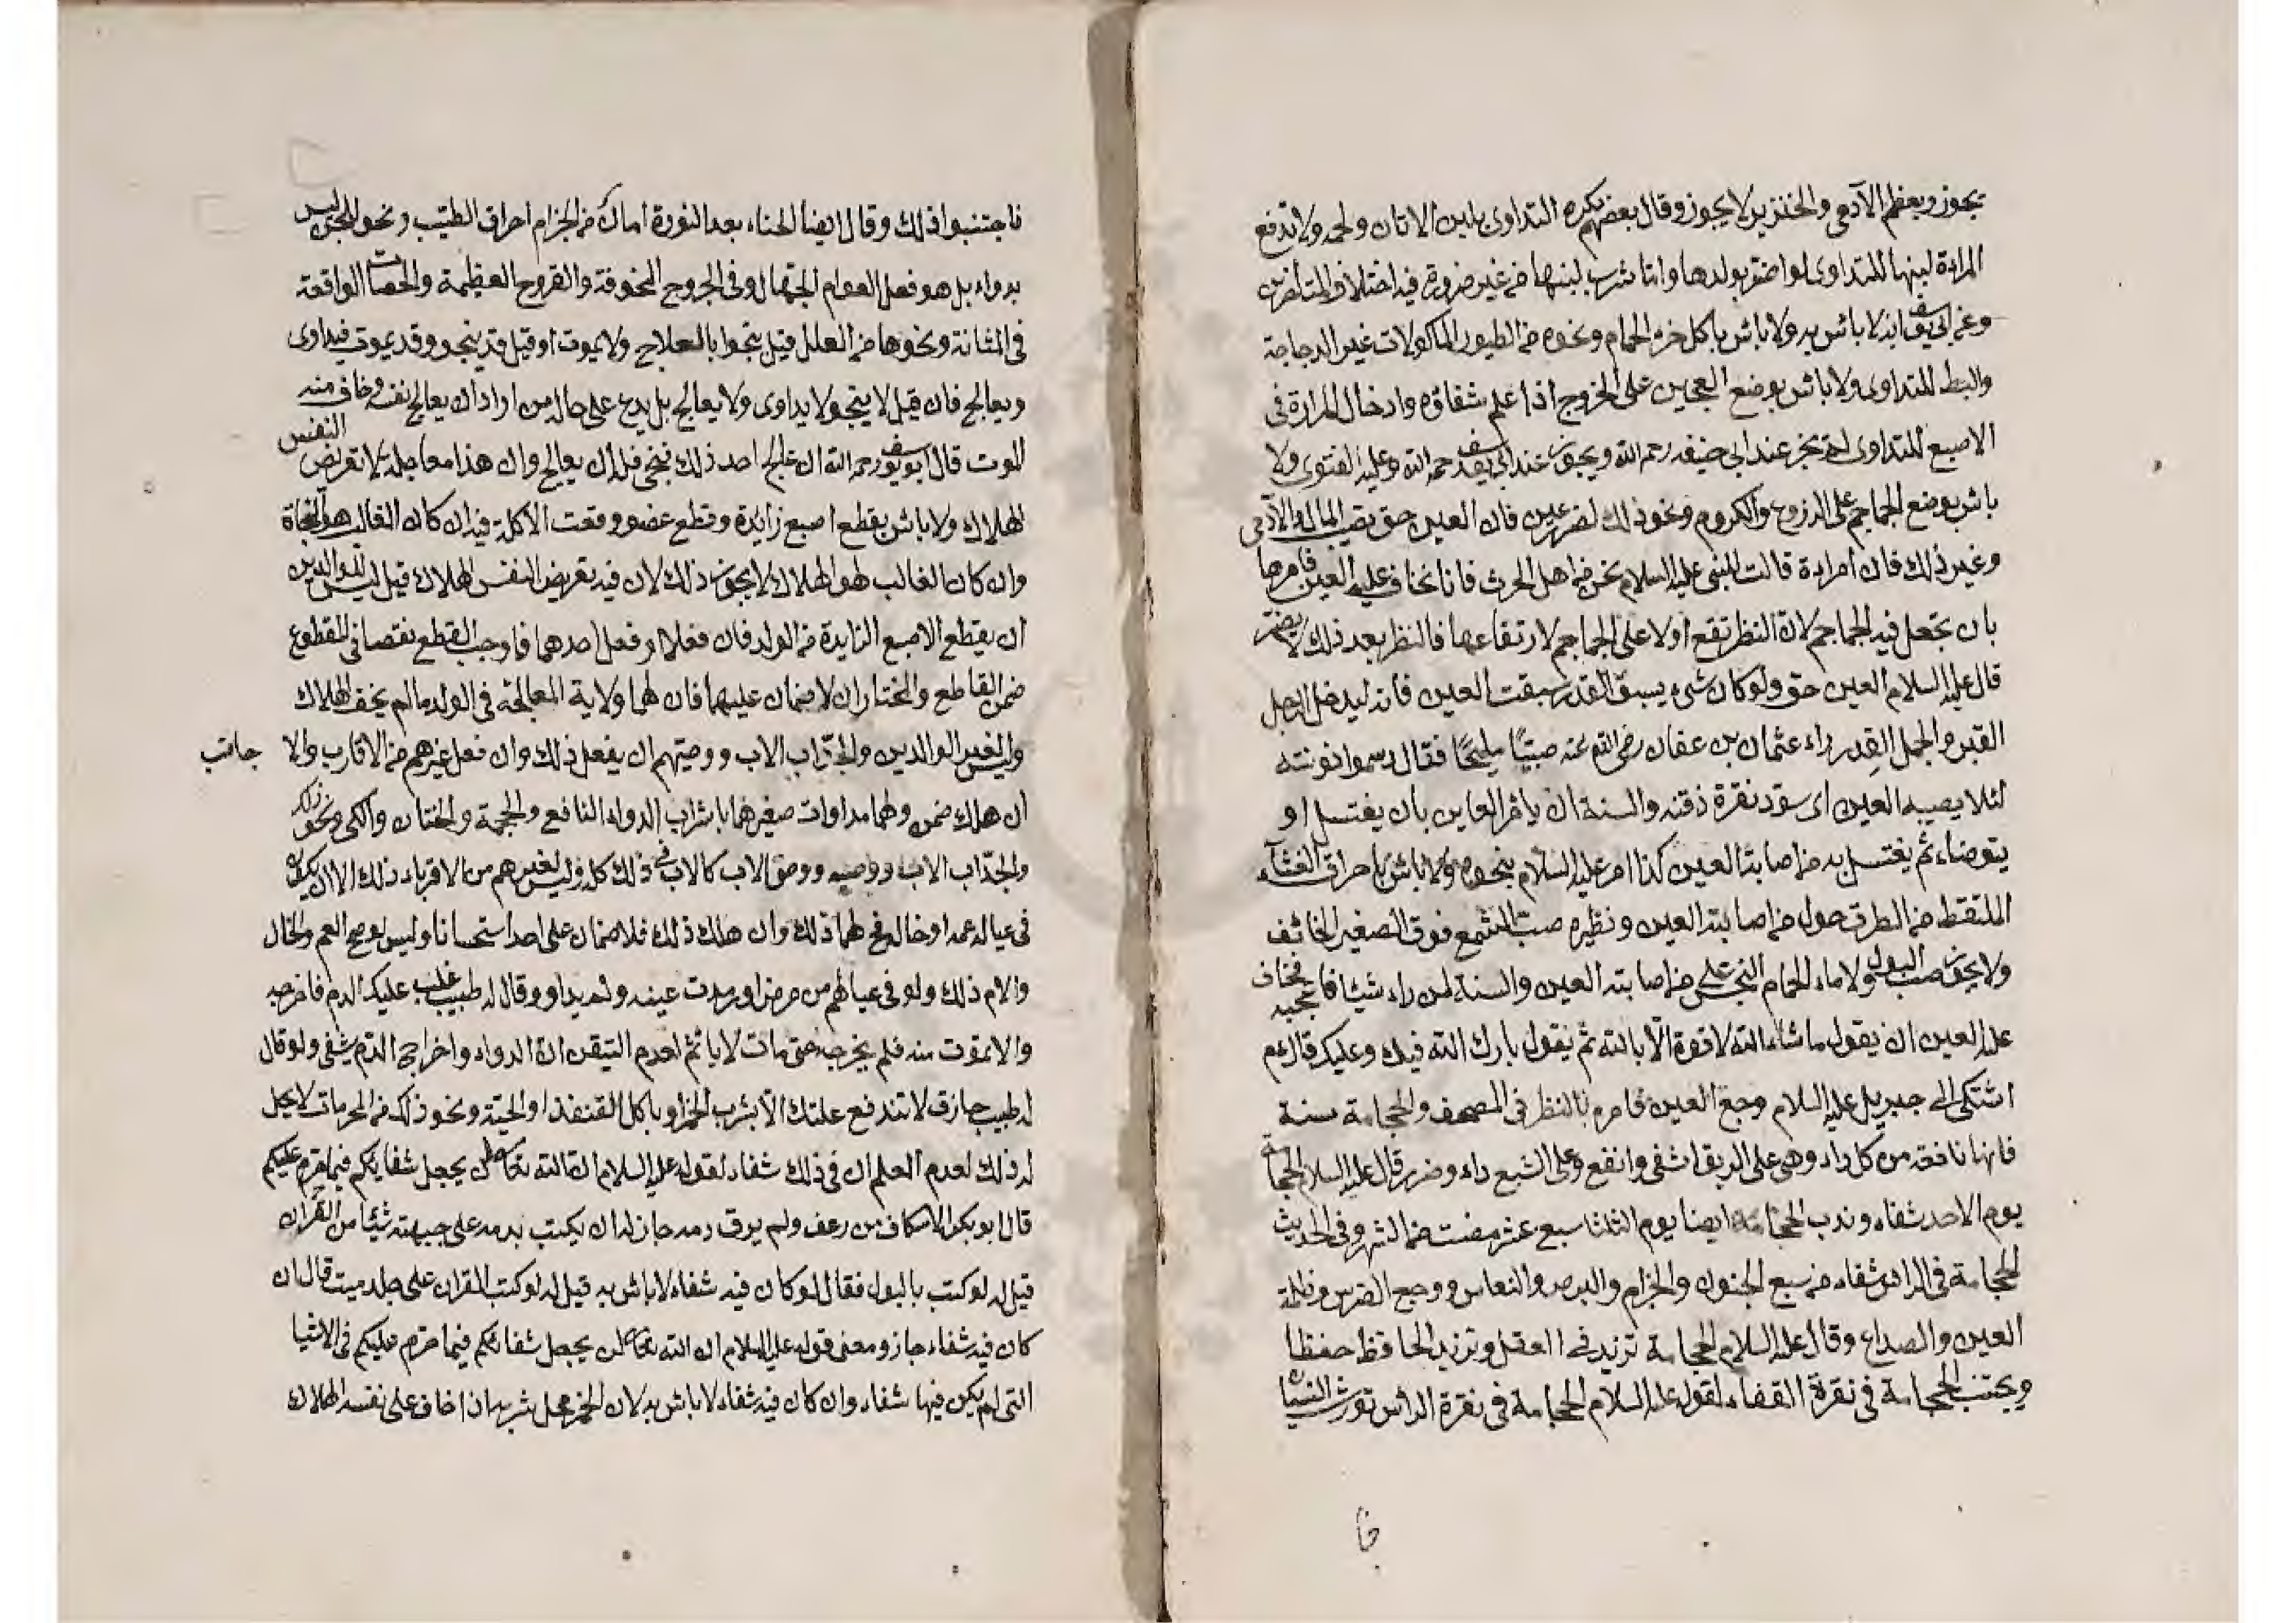 يجوز وبعظم الآدمى والخنزير لا يجوز وقال بعضهم يكره التداوى بلبن الاتان ولحمه ولا تدفع
المراءة لبنها للتداوى لو اضر بولدها واما شرب لبنها من غير ضرورة فيه اختلاف المتأخرين
وعن ابى يوسف انه لا باس به ولا باس باكل خرء الحمام ونحوه من الطيور الماكولات غير الدجاجة
والبط للتداوى ولا باس بوضع العجين على الخروج اذا علم شفاؤه وادخال المرارة فى
الاصبع للتداوى لم يجز عند ابى حنيفه رحمه الله ويجوز عند ابى يوسف رحمه الله وعليه الفتوى ولا
باس بوضع الجماجم على الزروع والكروم ونحو ذلك لضرر عين فان العين حق يصيب المال والآدمى
وغير ذلك فان امراءة قالت للنبى عليه السلام نحن من اهل الحرث فانا نخاف عليه العين فامرها
بان تجعل فيه الجماجم لان النظر تقع اولا على الجماجم لارتفاعها فالنظر بعد ذلك لا يضر
قال عليه السلام العين حق ولو كان شىء يسبق القدر سبقت العين فانه ليدخل الرجل
القبر والجمل القدر راء عثمان بن عفان رضى الله عنه صبيًا مليحًا فقال دسموا نونته
لئلا يصيبه العين اى سوّد نقرة ذقنه والسنة ان يامر العاين بان يغتسل او
يتوضاء ثم يغتسل به من اصابته العين كذا امر عليه السلام بنحوه ولا باس باحراق الغثآء
الملتقط من الطرق حول من اصابته العين ونظيره صبّ الشمع فوق الصغير الخائف
ولا يجوز صب البول ولا ماء الحمام النجس على من اصابته العين والسنة لمن راء شيئا فاعجبه فخاف
عليه العين ان يقول ما شاء الله لا قوة الّا بالله ثم يقول بارك الله فيك وعليك قال عم
اشتكى الى جبريل عليه السلام وجع العين فامره بالنظر فى المصحف والحجامة سنة
فانها نافعة من كل داء وهى على الريق اشفى وانفع وعلى الشبع داء وضرر قال عليه السلام الحجامة
يوم الاحد شفاء وندب الحجامة ايضا يوم الثلثا سبع عشر مضت من الشهر وفى الحديث
الحجامة فى الراس شفاء من سبع الجنون والجزام والبرص والنعاس ووجع الضرس وظلمة
العين والصداع وقال عليه السلام الحجامة تزيد فى العقل وتزيد الحافظ حفظا
ويجتنب الحجامة فى نقرة القفاء لقوله عليه السلام الحجامة فى نقرة الراس تورث النسيان
فا
فاجتنبوا ذلك وقال ايضا الحناء بعد النورة امان من الجزام احراق الطيّب ونحوه للجن ليس
بدواء بل هو فعل العوام الجهال وفى الجروح المخوفة والقروح العظيمة والحصات الواقعة
فى المثانة ونحوها من العلل قيل ينجوا بالعلاج ولا يموت او قيل قد ينجو وقد يموت فيداوى
ويعالج فان قيل لا ينجو لا يداوى ولا يعالج بل يدع على حاله من اراد ان يعالج نفسه وخاف منه
الموت قال ابو يوسف رحمه الله ان عالج احد ذلك فنجى فله ان يعالج وان هذا معاجلة لا تعريض النفس
للهلاك ولا باس بقطع اصبع زايدة وقطع عضو وقعت الآكلة فيه ان كان الغالب هو النجاة
وان كان الغالب هو الهلاك لا يجوز ذلك لان فيه تعريض النفس للهلاك قيل ليس للوالدين
ان يقطع الاصبع الزايدة من الولد فان فعلا او فعل احدهما فاوجب القطع نقصا فى المقطوع
ضمن القاطع والمختار ان لا ضمان عليهما فان لهما ولاية المعالجة فى الولد ما لم يخف الهلاك
وليس لغير الوالدين والجدّ اب الاب ووصيّهم ان يفعل ذلك وان فعل غيرهم من الاقارب والا جانب
ان هلك ضمن ولهما مداوات صغيرهما باشراب الدواء النافع والحجمة والختان والكى ونحو ذلك
والجدّ اب الاب ووصيه ووصى الاب كالاب فى ذلك كله وليس لغيرهم من الاقرباء ذلك الا ان يكون
فى عياله عمه او خاله فح لهما ذلك وان هلك ذلك فلا ضمان على احد استحسانا وليس لوصى العم والخال
والام ذلك ولو فى عيالهم من مرض او رمدت عينه ولم يداو وقال له طبيب غلب عليك الدم فاخرجه
والا تموت منه فلم يخرجه حتى مات لا ياثم لعدم التيقن ان الدواء واخراج الدم يشفى ولو قال
له طبيب حازق لا تندفع علتك الّا بشرب الخمر او باكل القنفذ او الحيّة ونحو ذلك من المحرمات لا يحل
له ذلك لعدم العلم ان فى ذلك شفاء لقوله عليه السلام ان الله تعالى لن يجعل شفائكم فيما حرم عليكم
قال ابو بكر الاسكاف من رعف ولم يرق دمه جاز له ان يكتب بدمه على جبهته شيئا من القرآن
قيل له لو كتب بالبول فقال لو كان فيه شفاء لا باس به قيل له لو كتب القران على جلد ميت قال ان
كان فيه شفاء جاز ومعنى قوله عليه السلام ان الله تعالى لن يجعل شفائكم فيما حرّم عليكم فى الاشيا
التى لم يكن فيها شفاء وان كان فيه شفاء لا باس به لان الخمر يحل شربه اذا خاف على نفسه الهلاك